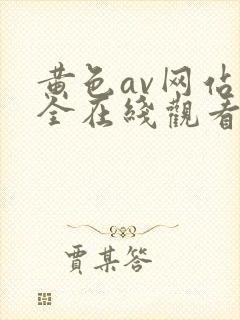 黄色av网佔
全在綫觀看
賈某答